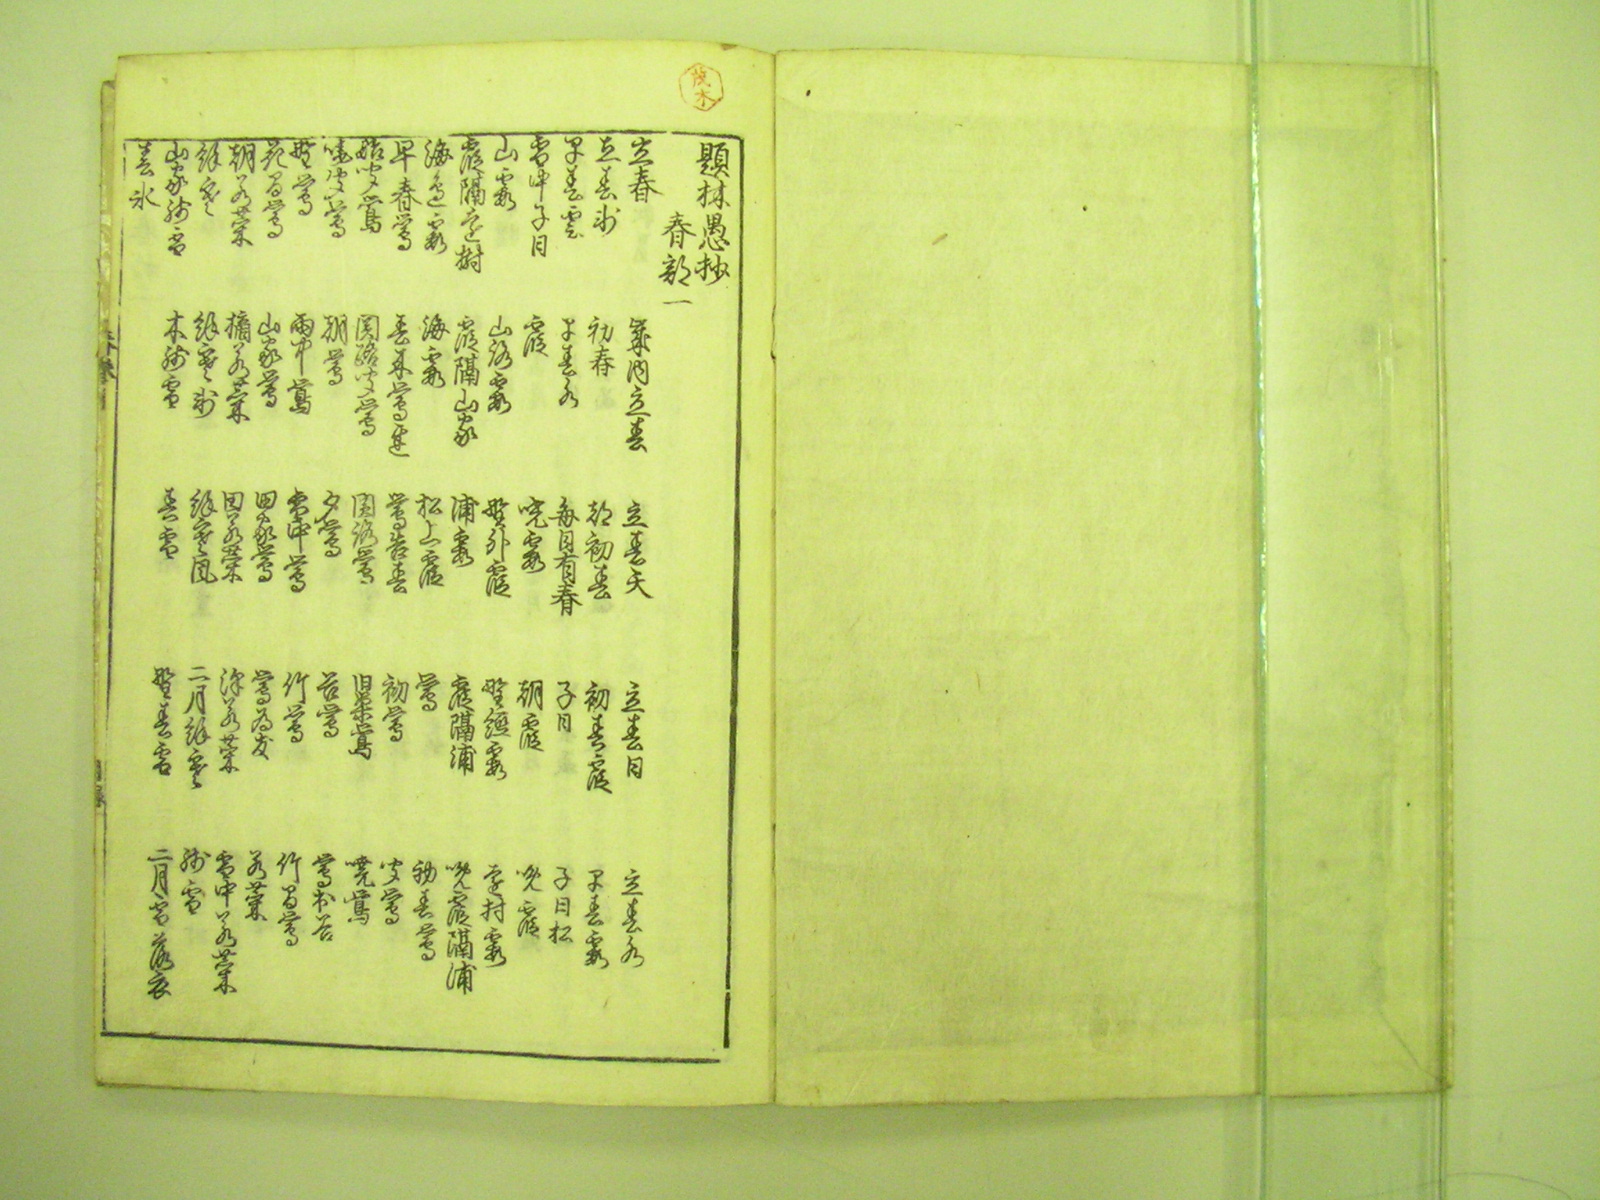 茂木
題林愚抄
春部一
立春 年内立春 立春天 立春日 立春水
立春 初春 都初春 初春霞 早春霞
早春 早春水 毎月有春 子日 子日松
雪中子日 霞 暁霞 朝霞 晩霞
山霞 山路霞 野外霞 野径霞 遠村霞
霞隔遠樹 霞隔山家 浦霞 霞隔浦 晩霞隔浦
海辺霞 海霞 松上霞 鶯 初春鶯
早春鶯 春来鶯遅 鶯告春 初鶯 聞鶯
始聞鶯 関路聞鶯 関路鶯 旧巣鶯 暁鶯
暁聞鶯 朝鶯 夕鶯 谷鶯 鶯出谷
野鶯 雨中鶯 雪中鶯 竹鶯 竹間鶯
花間鶯 山家鶯 田家鶯 鶯為友 若菜
朝若菜 摘若菜 田若菜 沢若菜 雪中若菜
余寒 余寒 余寒風 二月余寒 残雪
山家残雪 木残雪 春雪 野春雪 二月雪落衣
春氷